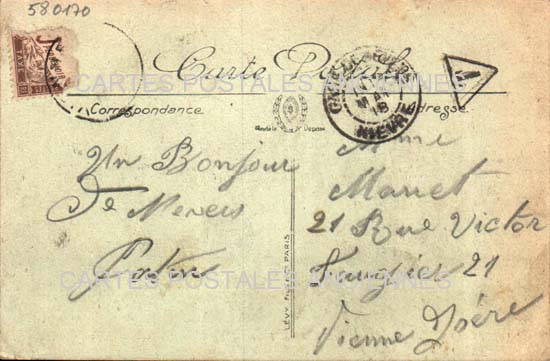 580170
Carte Postale
Correspondance
Adresse
NIEVRE
T
CARTES POSTALES ANCIENNES
Un Bonjour
De Nevers
Mme
21 Rue Victor
21
Vienne Isère
LÉVY FILS PARIS
CARTES POSTALES ANCIENNES